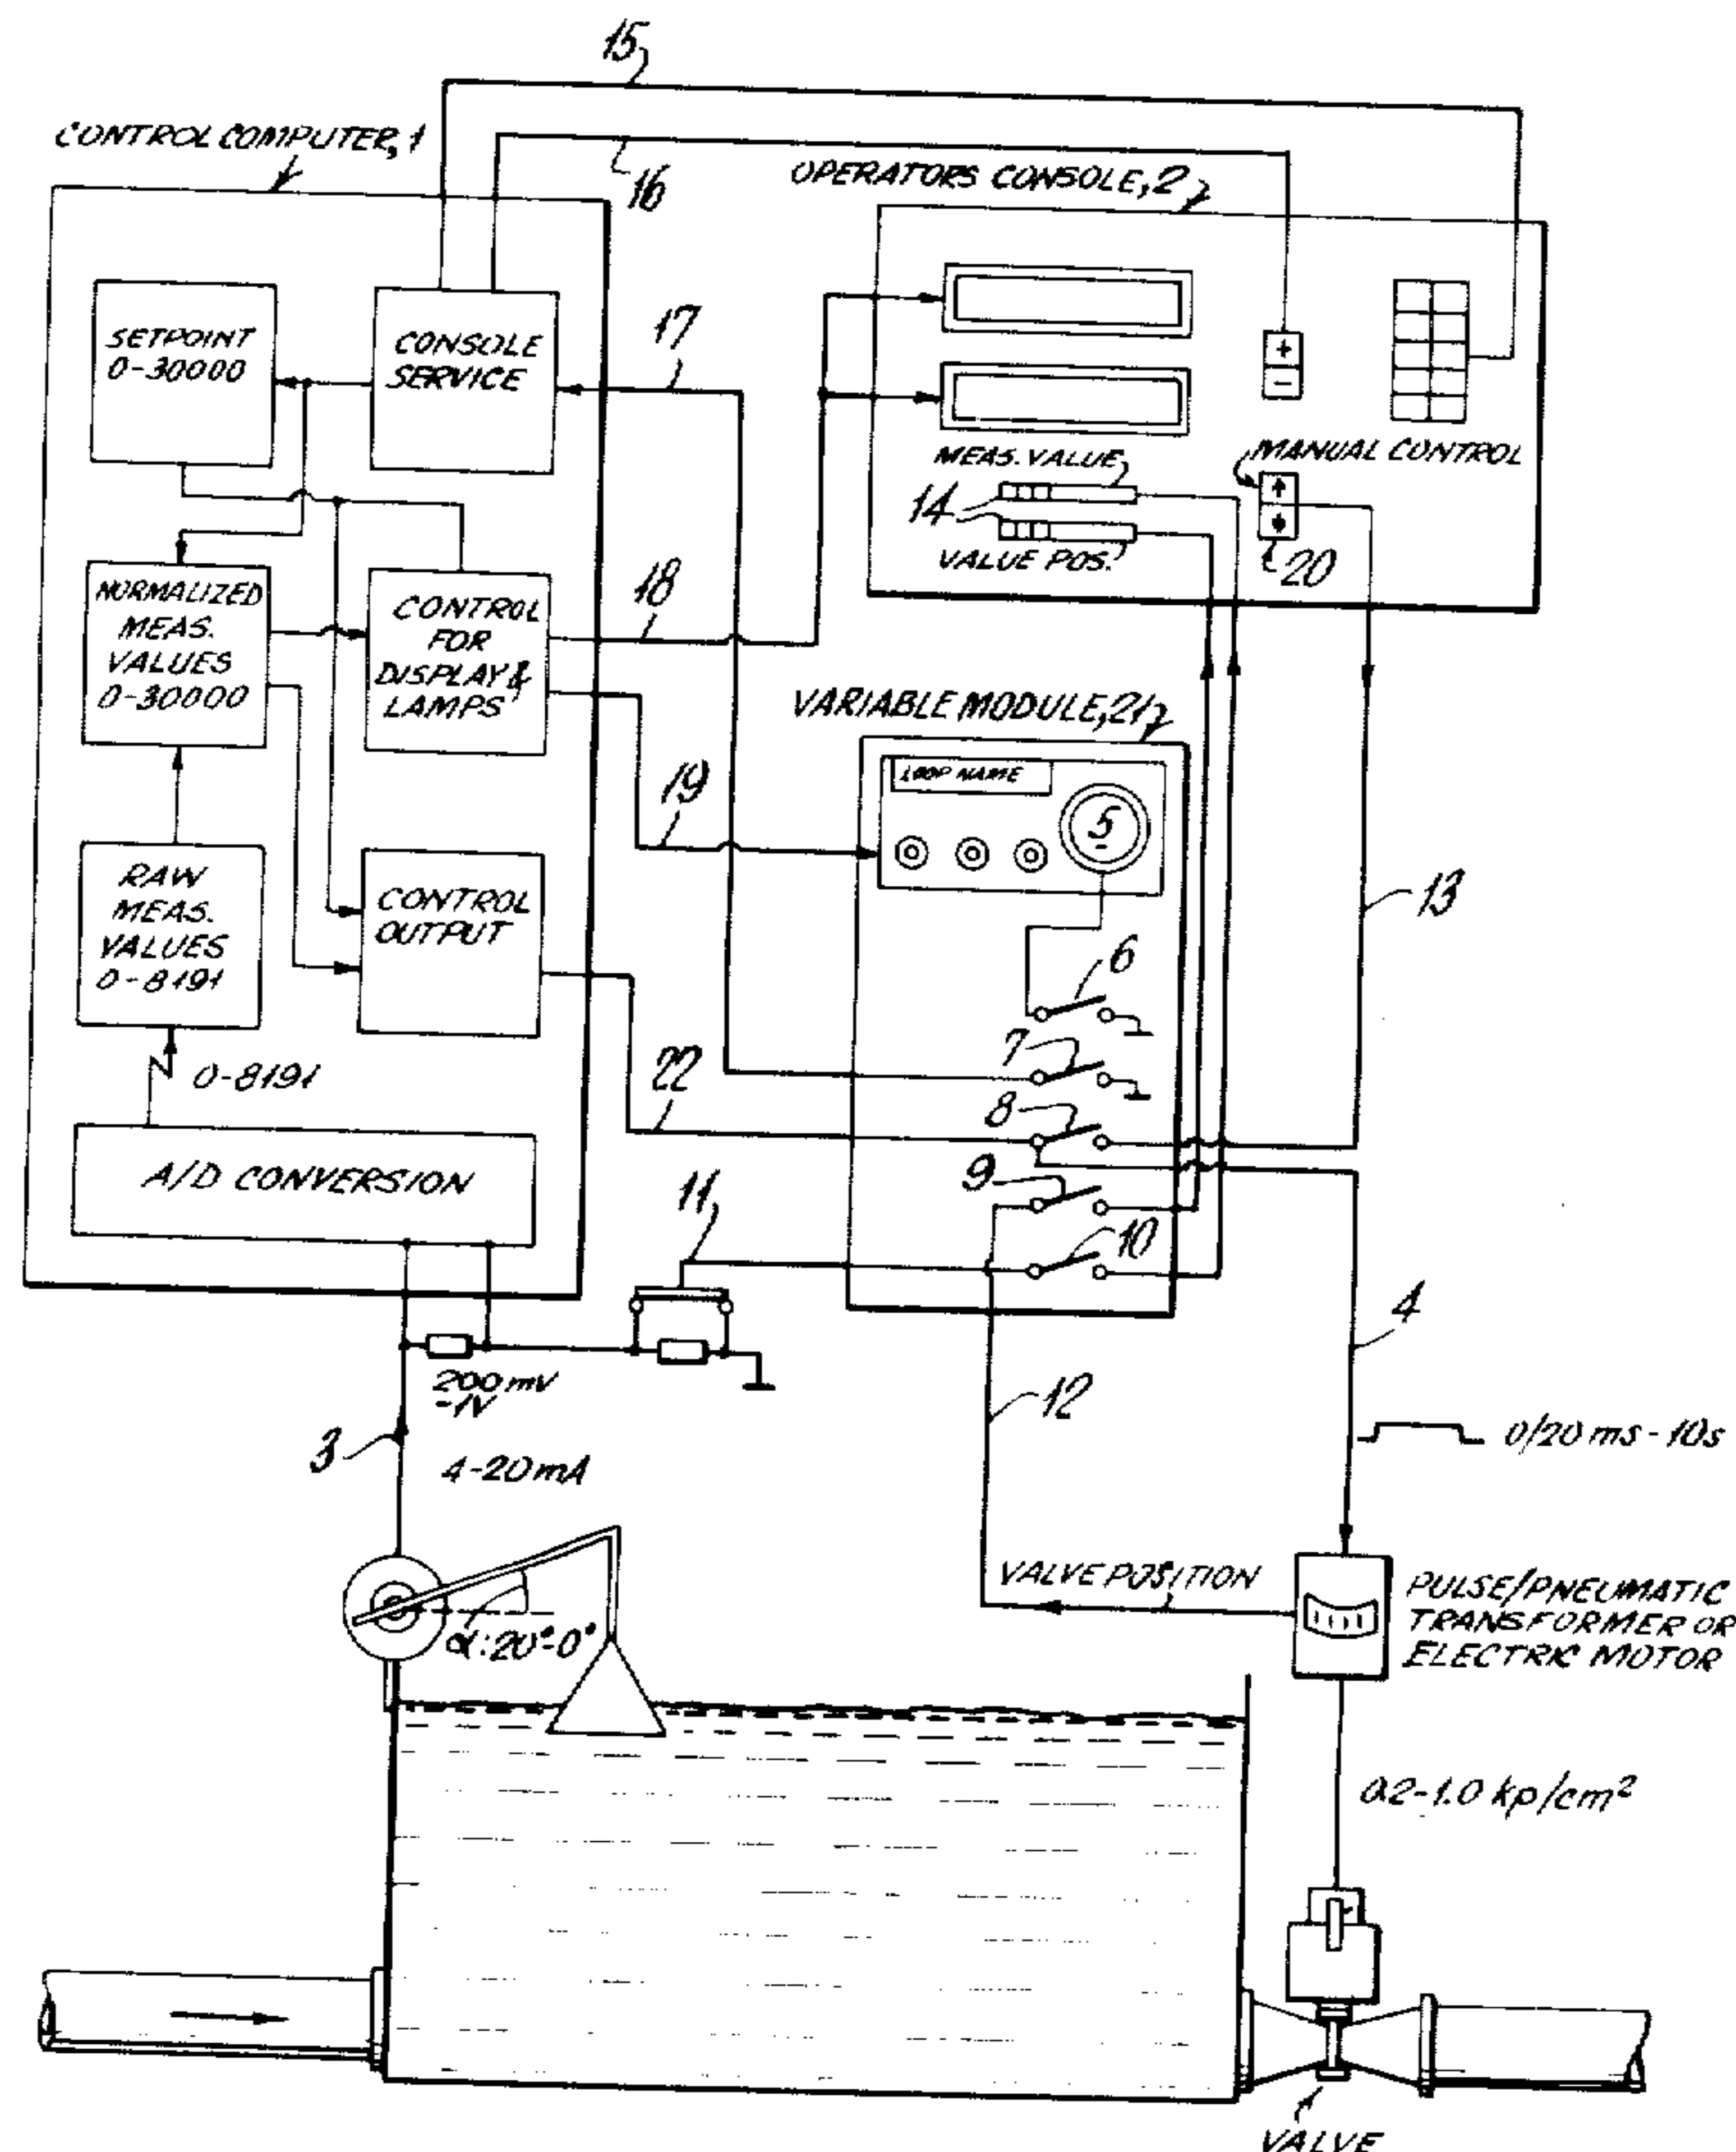 15
CONTROL COMPUTER, 1
16
OPERATORS CONSOLE, 2
SETPOINT
0-30000
CONSOLE
SERVICE
17
+
-
MEAS. VALUE
MANUAL CONTROL
14
VALUE POS.
20
NORMALIZED
MEAS.
VALUES
0-30000
CONTROL
FOR
DISPLAY &
LAMPS
18
VARIABLE MODULE, 21
LOOP NAME
5
19
RAW
MEAS.
VALUES
0-8191
CONTROL
OUTPUT
13
6
7
0-8191
22
8
A/D CONVERSION
9
11
10
4
200 mV
-1V
12
3
4-20 mA
0/20 ms - 10s
VALVE POSITION
PULSE/PNEUMATIC
TRANSFORMER OR
ELECTRIC MOTOR
α: 20°-0°
0.2-1.0 kp/cm²
VALVE